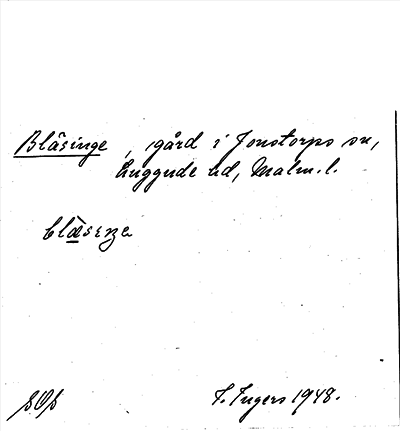 Blåsinge, gård i Jonstorps sn,
Luggude hd, Malm. l.
blæ̀sıŋe
I. Ingers 1948.